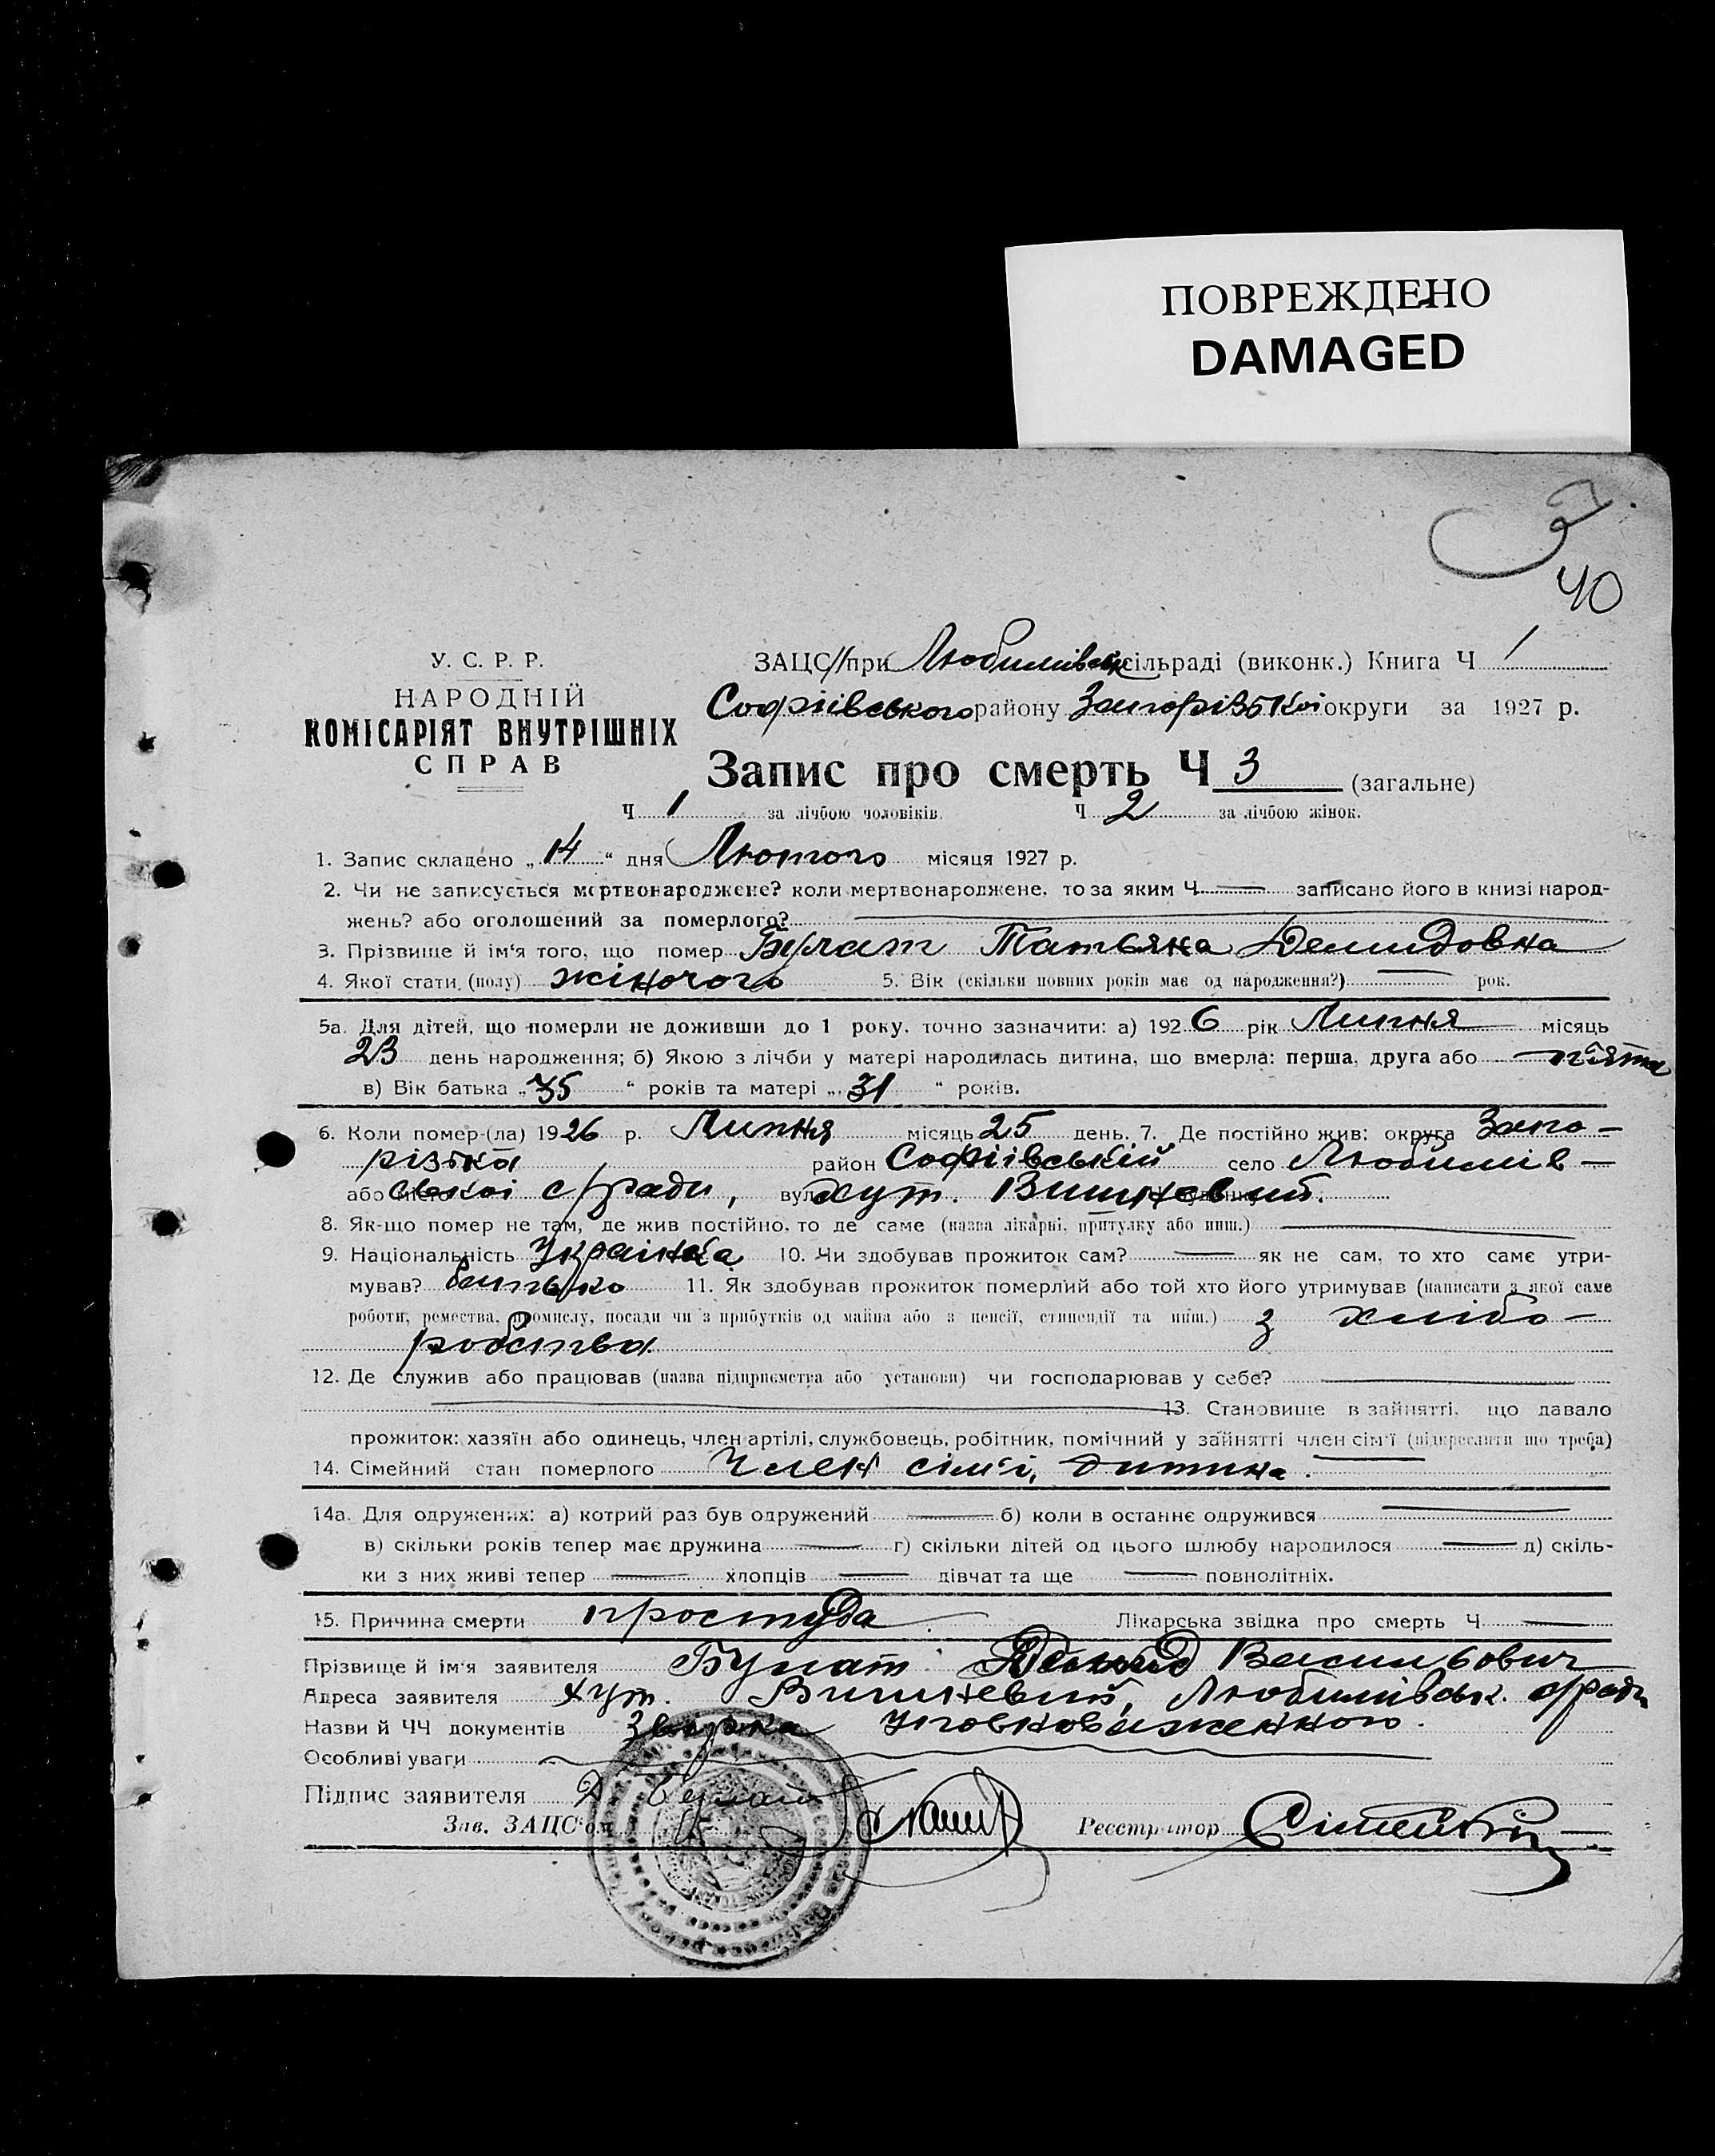 ПОВРЕЖДЕНО
DAMAGED
40
У. С. Р. Р.
НАРОДНІЙ
КОМІСАРІЯТ ВНУТРІШНІХ
СПРАВ
ЗАЦС при Любимівськ сільраді (виконк.) Книга Ч 1
Софіівського району Запорізькоі округи за 1927 р.
Запис про смерть Ч 3 (загальне)
Ч 1 за лічбою чоловіків. Ч 2 за лічбою жінок.
1. Запис складено „ 14 “ дня Лютого місяця 1927 р.
2. Чи не записується мертвонароджене? коли мертвонароджене, то за яким Ч — записано його в книзі народ-
жень? або оголошений за померлого?
3. Прізвище й ім‘я того, що помер Булат Татьяна Демидовна
4. Якої стати (полу) жіночого 5. Вік (скільки повних років має од народження?) — рок.
5а. Для дітей, що померли не доживши до 1 року, точно зазначити: а) 1926 рік Липня місяць
23 день народження; б) Якою з лічби у матері народилась дитина, що вмерла: перша, друга або — п‘ята
в) Вік батька „ 35 “ років та матері „ 31 “ років.
6. Коли помер-(ла) 1926 р. Липня місяць 25 день. 7. Де постійно жив: округа Запо-
різька район Софіівській село Любимів-
або місто ськоі с/ради, вул. хут. Вишневий.
8. Як-що помер не там, де жив постійно, то де саме (назва лікарні, притулку або инш.) —
9. Національність Украінка 10. Чи здобував прожиток сам? — як не сам, то хто саме утри-
мував? батько 11. Як здобував прожиток померлий або той хто його утримував (написати з якої саме
роботи, ремества, промислу, посади чи з прибутків од майна або з пенсії, стипендії та инш.) з хлібо-
робства
12. Де служив або працював (назва підприємства або установи) чи господарював у себе? —
13. Становище в зайнятті, що давало
прожиток: хазяїн або одинець, член артілі, службовець, робітник, помічний у зайнятті член сім‘ї (підкреслити що треба)
14. Сімейний стан померлого Член сім‘і, дитина.
14а. Для одружених: а) котрий раз був одружений — б) коли в останнє одружився —
в) скільки років тепер має дружина — г) скільки дітей од цього шлюбу народилося — д) скіль-
ки з них живі тепер — хлопців — дівчат та ще — повнолітніх.
15. Причина смерти простуда. Лікарська звідка про смерть Ч —
Прізвище й ім‘я заявителя Булат Демид Васильович
Адреса заявителя хут. Вишневий, Любимівськ. с/ради
Назви й ЧЧ документів Звідка уповноваженного.
Особливі уваги
Підпис заявителя Д Булат
Зав. ЗАЦС‘ом Реєстратор